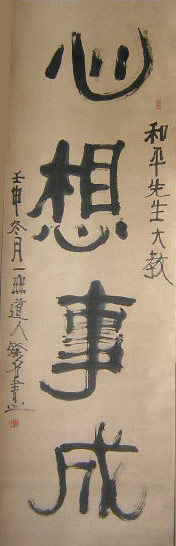 和平先生大教
心想事成
壬申冬月一無道人發奇書